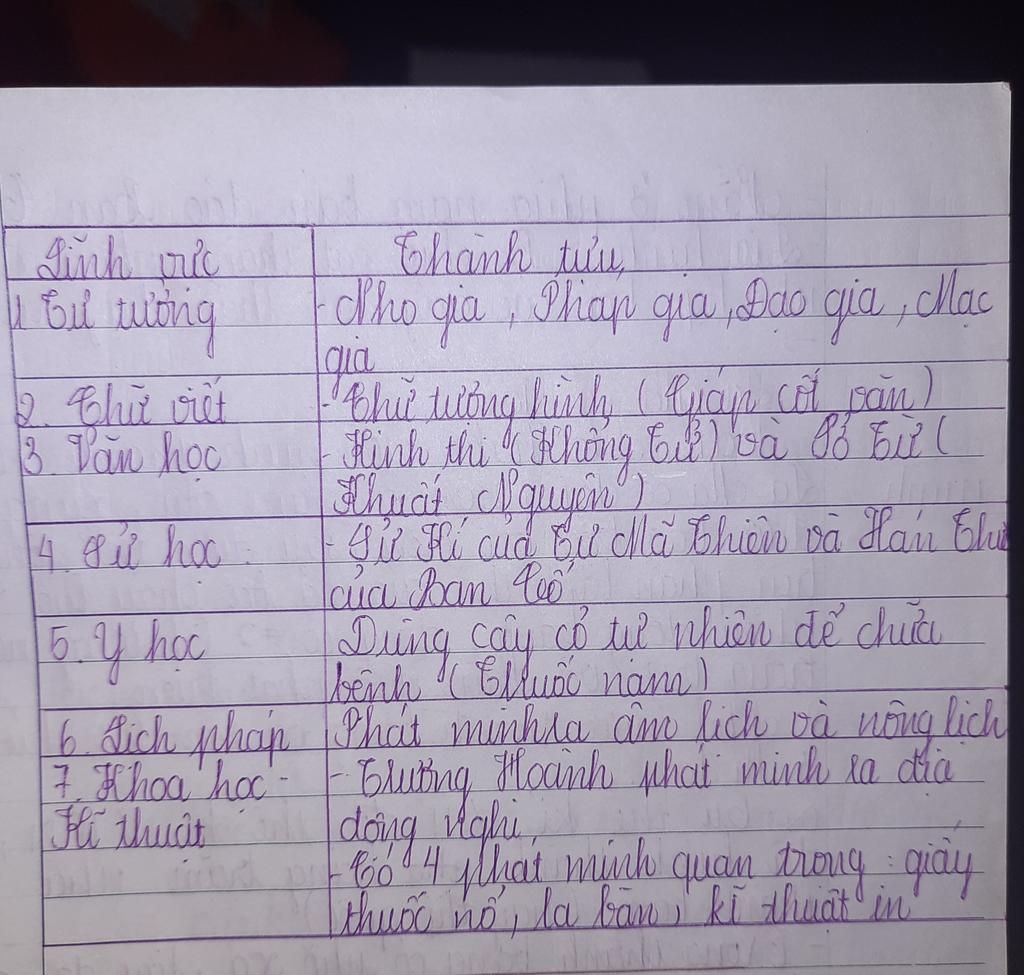 Lĩnh vực Thành tựu
1. Tư tưởng - Nho gia, Pháp gia, Đạo gia, Mạc
gia
2. Chữ viết - Chữ tượng hình (Giáp cốt văn)
3. Văn học - Kinh thi (Khổng Tử) và Sở Từ (
Khuất Nguyên)
4. Sử học - Sử Kí của Tư Mã Thiên và Hán Thư
của Ban Cố
5. Y học Dùng cây cỏ tự nhiên để chữa
bệnh (Thuốc nam)
6. Lịch pháp Phát minh ra âm lịch và nông lịch
7. Khoa học - - Trương Hoành phát minh ra địa
Kĩ thuật động nghi
- Có 4 phát minh quan trọng: giấy
thuốc nổ, la bàn, kĩ thuật in